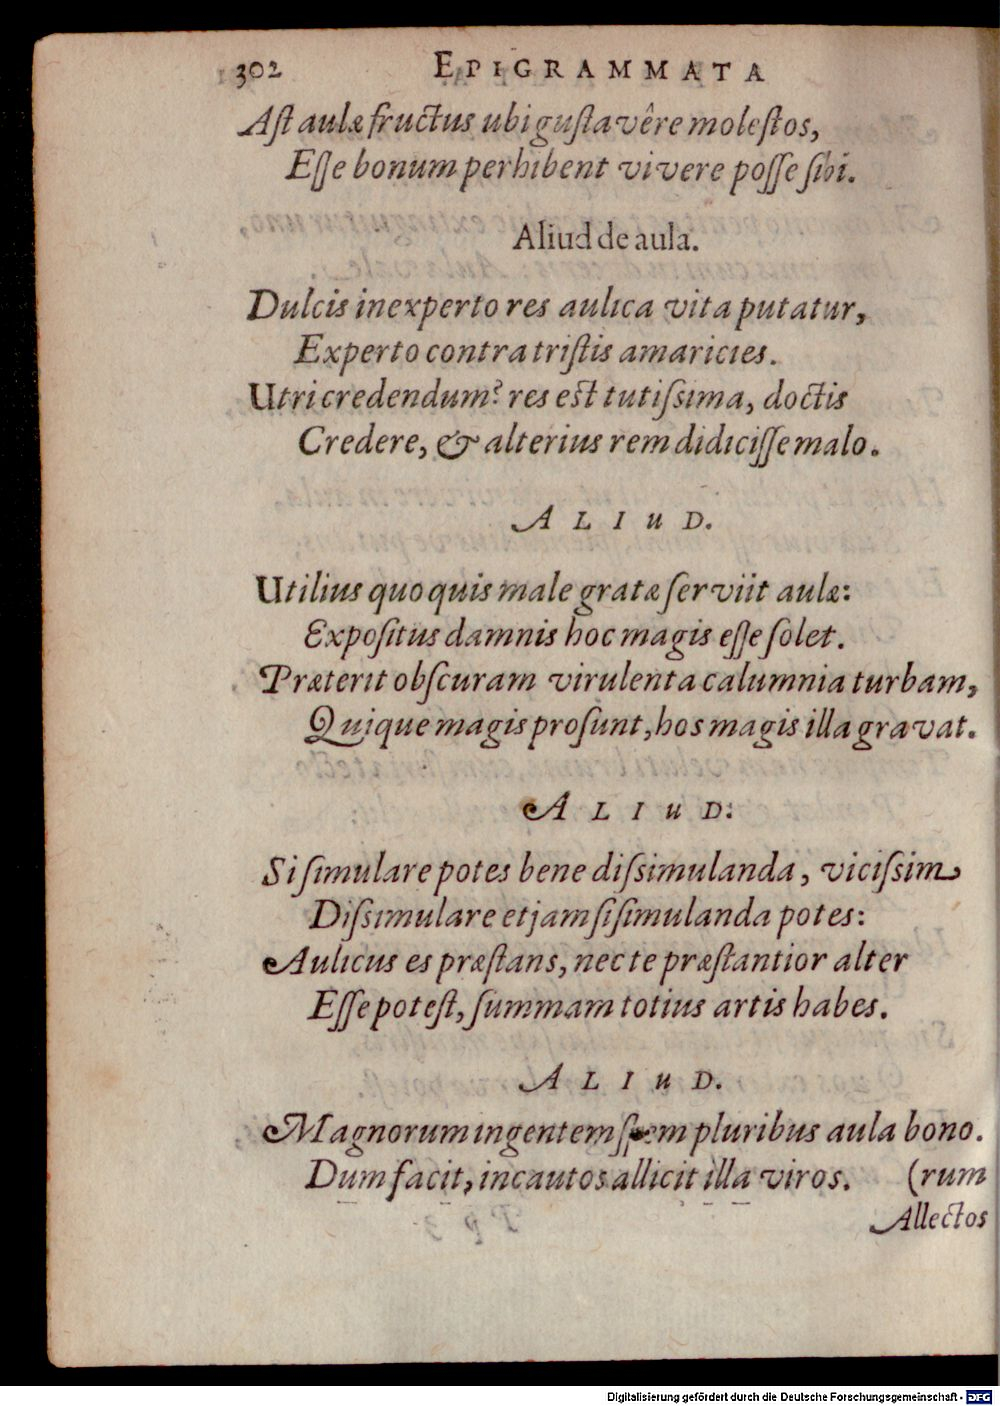 302 EPIGRAMMATA
Ast aulæ fructus ubi gustavêre molestos,
Esse bonum perhibent vivere posse sibi.
Aliud de aula.
Dulcis inexperto res aulica vita putatur,
Experto contra tristis amaricies.
Utri credendum? res est tutissima, doctis
Credere, & alterius rem didicisse malo.
ALIUD.
Utilius quo quis male gratæ serviit aulæ:
Expositus damnis hoc magis esse solet.
Præterit obscuram virulenta calumnia turbam,
Quique magis prosunt, hos magis illa gravat.
ALIUD:
Si simulare potes bene dissimulanda, vicissim
Dissimulare etjam si simulanda potes:
Aulicus es præstans, nec te præstantior alter
Esse potest, summam totius artis habes.
ALIUD.
Magnorum ingentem spem pluribus aula bono.
Dum facit, incautos allicit illa viros. (rum
Allectos
Digitalisierung gefördert durch die Deutsche Forschungsgemeinschaft - DFG